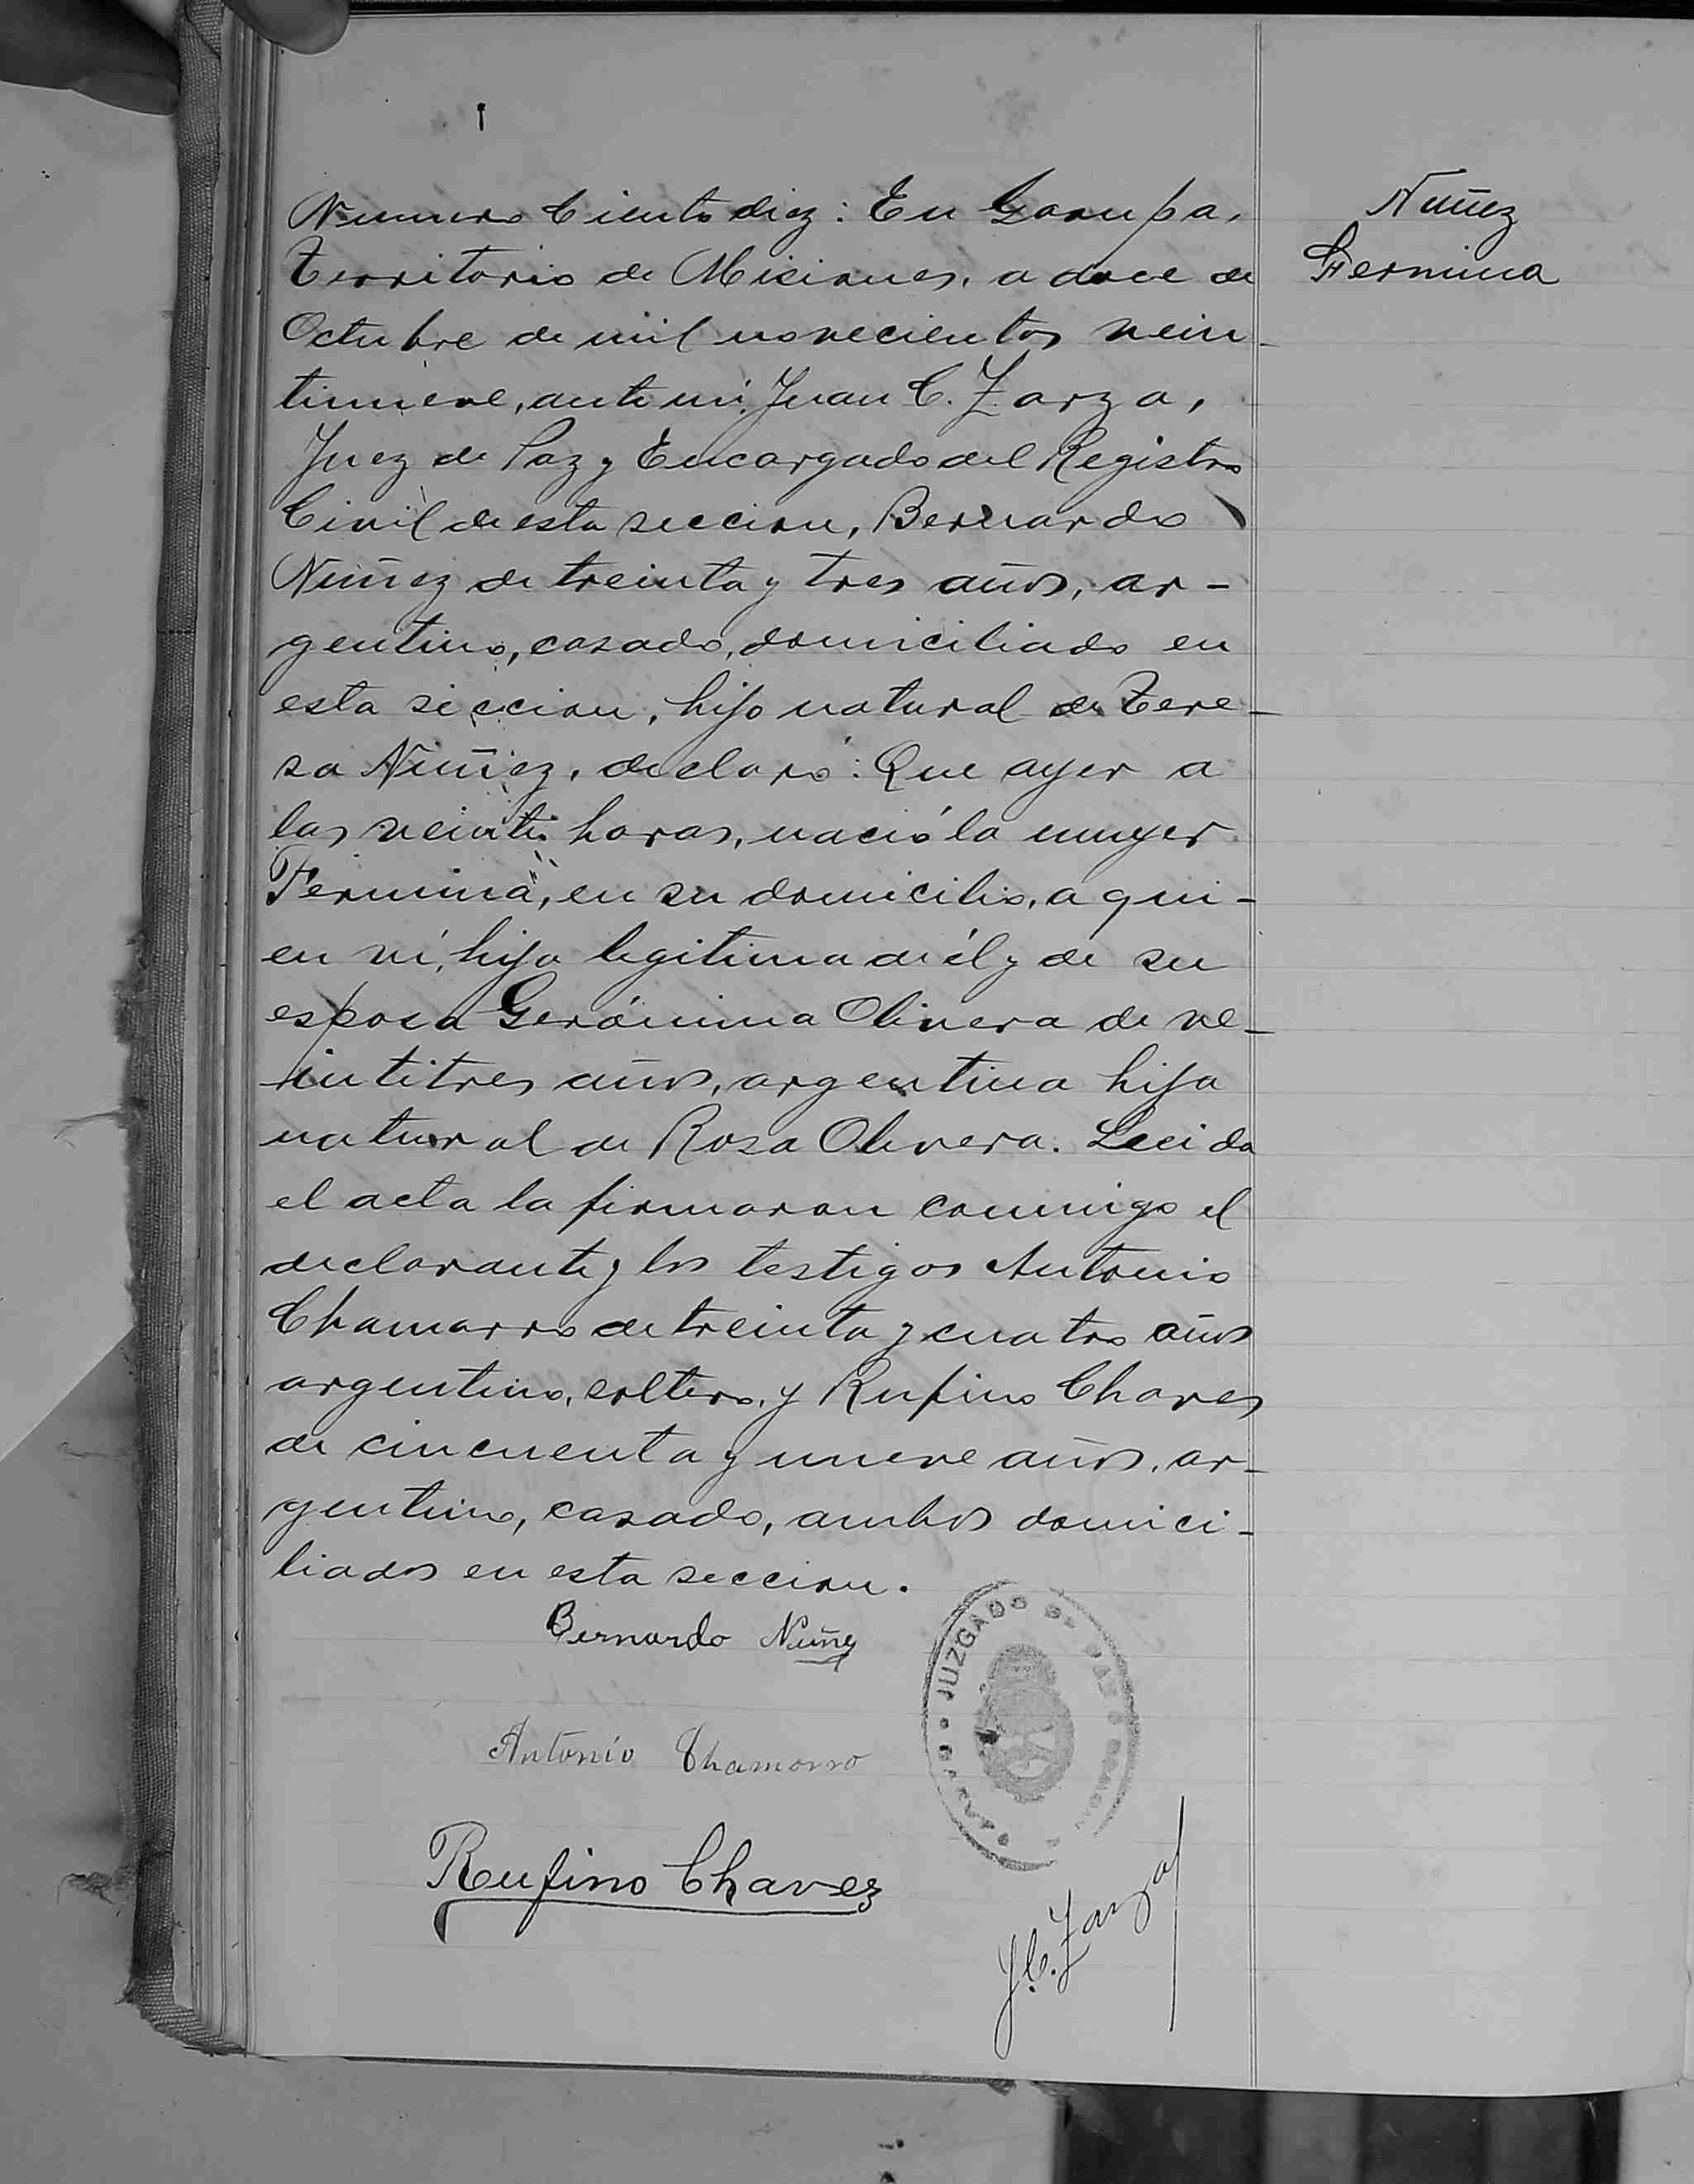 Numero Ciento diez: En Garupa,
Territorio de Misiones, a doce de
Octubre de mil novecientos vein-
tinueve, ante mi: Juan C. Zarza,
Juez de Paz y Encargado del Registro
Civil de esta seccion, Bernardo
Nuñez de treinta y tres años, ar-
gentino, casado, domiciliado en
esta seccion, hijo natural de Tere-
sa Nuñez, declaró: Que ayer a
las veinte horas, nació la mujer
"Fermina", en su domicilio, a qui-
en ví, hija legitima de él y de su
esposa Gerónima Olivera de ve-
intitres años, argentina hija
natural de Rosa Olivera. Leida
el acta la firmaron conmigo el
declarante y los testigos Antonio
Chamorro de treinta y cuatro años
argentino, soltero, y Rufino Chaves
de cincuenta y nueve años, ar-
gentino, casado, ambos domici-
liados en esta seccion.
Bernardo Nuñez
Antonio Chamorro
Rufino Chavez
J.C. Zarza
JUZGADO DE PAZ
GARUPA
Nuñez
Fermina